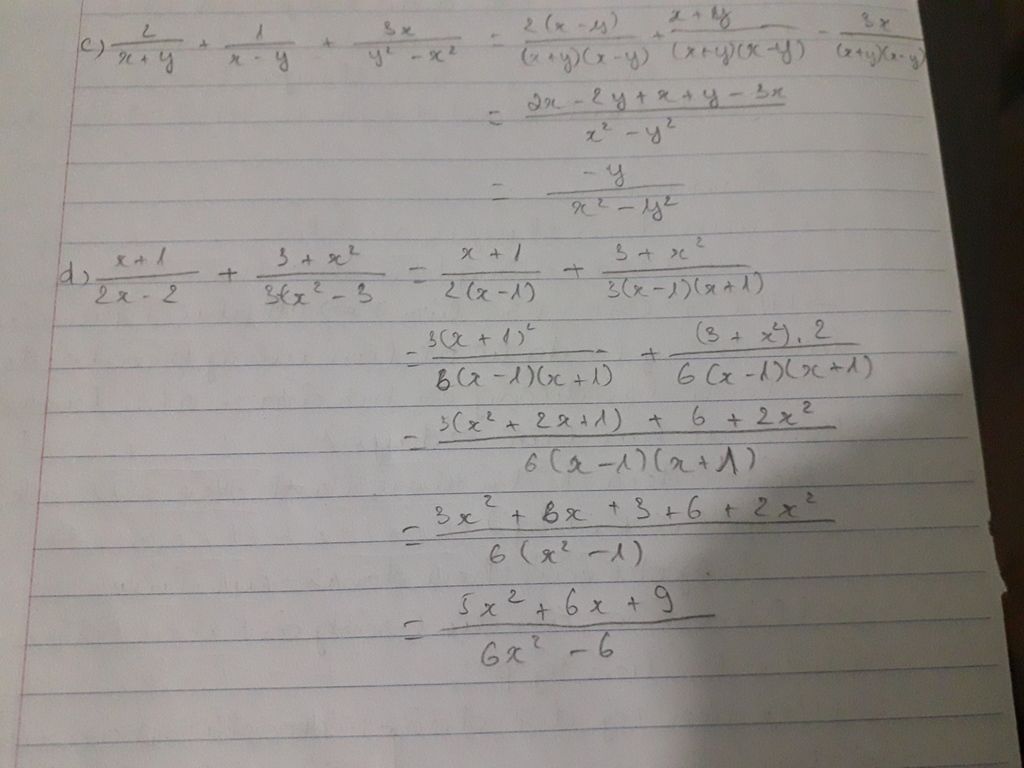 c) 2/(x+y) + 1/(x-y) + 3x/(y²-x²) = 2(x-y)/((x+y)(x-y)) + (x+y)/((x+y)(x-y)) - 3x/((x+y)(x-y))
= (2x-2y+x+y-3x)/(x²-y²)
= -y/(x²-y²)
d) (x+1)/(2x-2) + (3+x²)/(3x²-3) = (x+1)/(2(x-1)) + (3+x²)/(3(x-1)(x+1))
= 3(x+1)²/(6(x-1)(x+1)) + (3+x²).2/(6(x-1)(x+1))
= (3(x²+2x+1)+6+2x²)/(6(x-1)(x+1))
= (3x²+6x+3+6+2x²)/(6(x²-1))
= (5x²+6x+9)/(6x²-6)